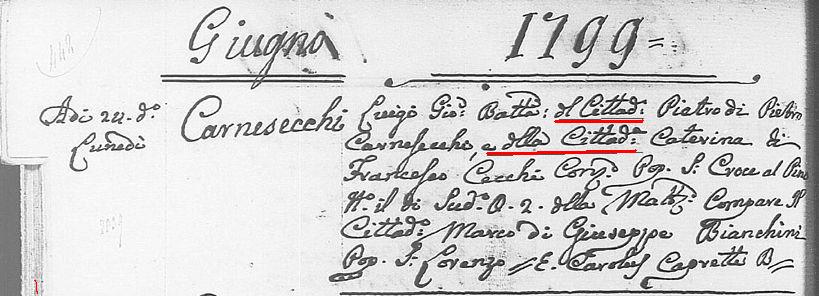 442
Giugno 1799 =
Adi 24. d.º Carnesecchi Luigi Gio: Batta: del Cittad.º Pietro di Pietro
Lunedì Carnesecchi, e della Cittad.ª Caterina di
Francesco Cecchi Con.º Pop. S. Croce al Pino
N.º il di Sud.º O. 2. della Matt.ª Compare Il
Cittad.º Marco di Giuseppe Bianchini
Pop. S. Lorenzo // E. Capretti B